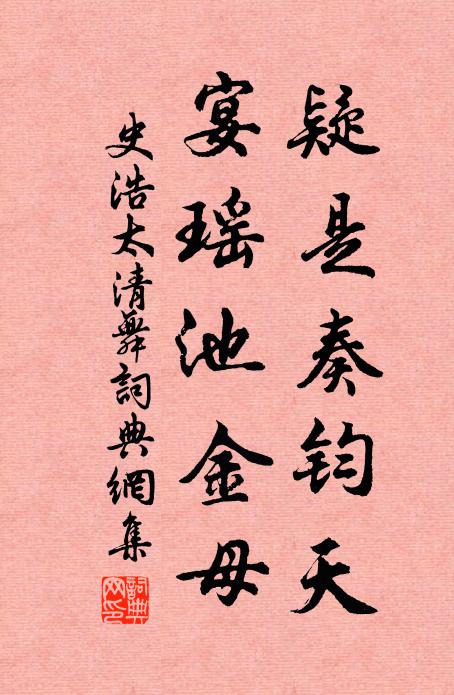 疑是奏钧天
宴瑶池金母
史浩太清舞詞典網集
詞典
网印